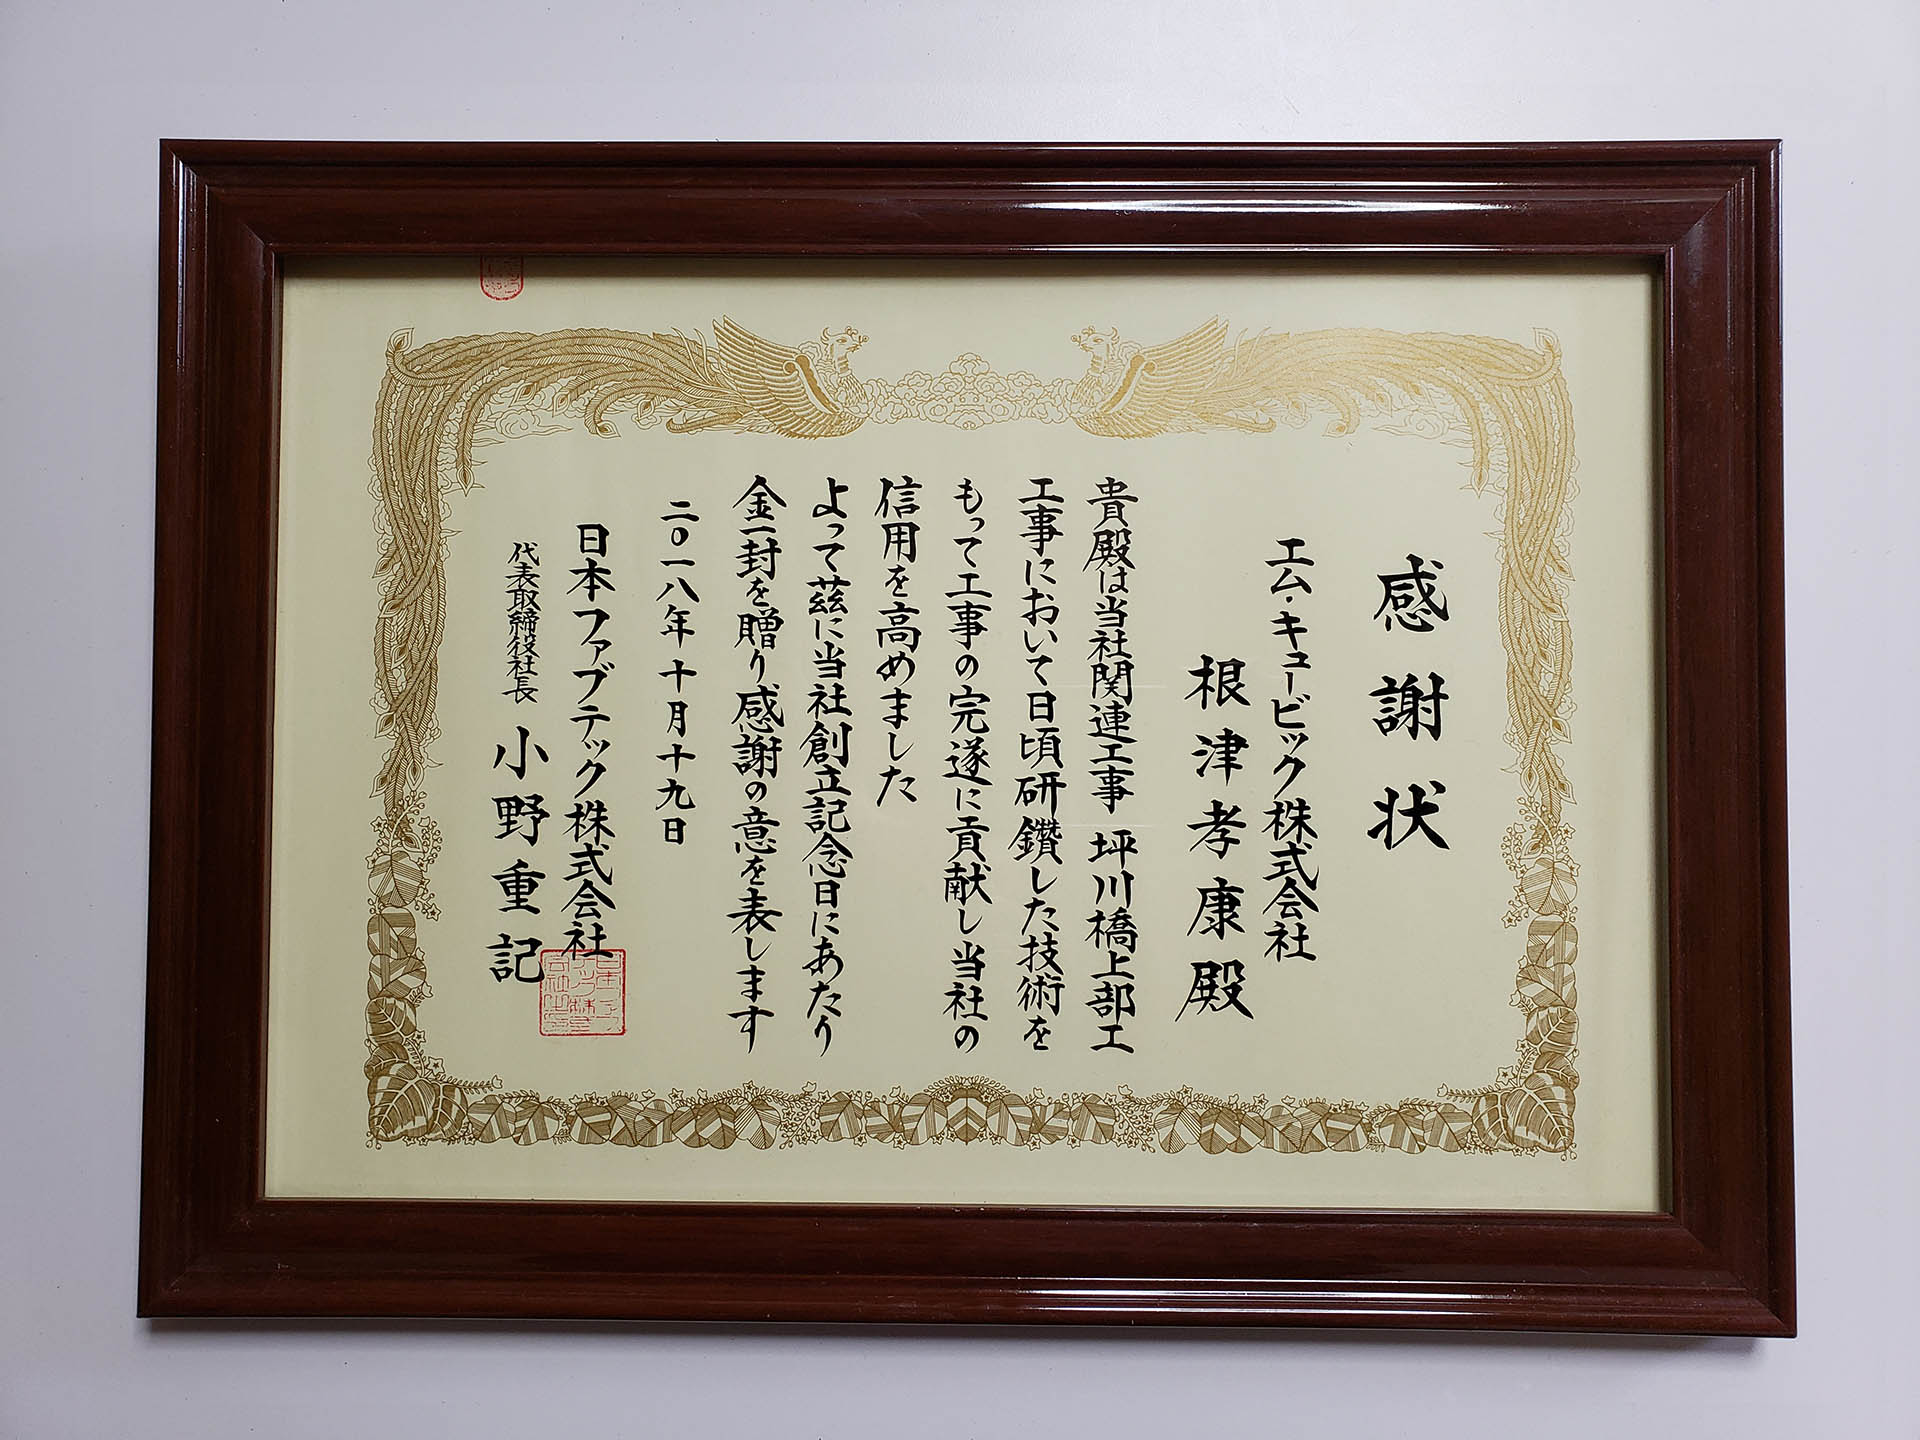 感謝状
エム・キュービック株式会社
根津孝康殿
貴殿は当社関連工事 坪川橋上部工
工事において日頃研鑽した技術を
もって工事の完遂に貢献し当社の
信用を高めました
よって茲に当社創立記念日にあたり
金一封を贈り感謝の意を表します
二〇一八年十月十九日
日本ファブテック株式会社
代表取締役社長 小野重記